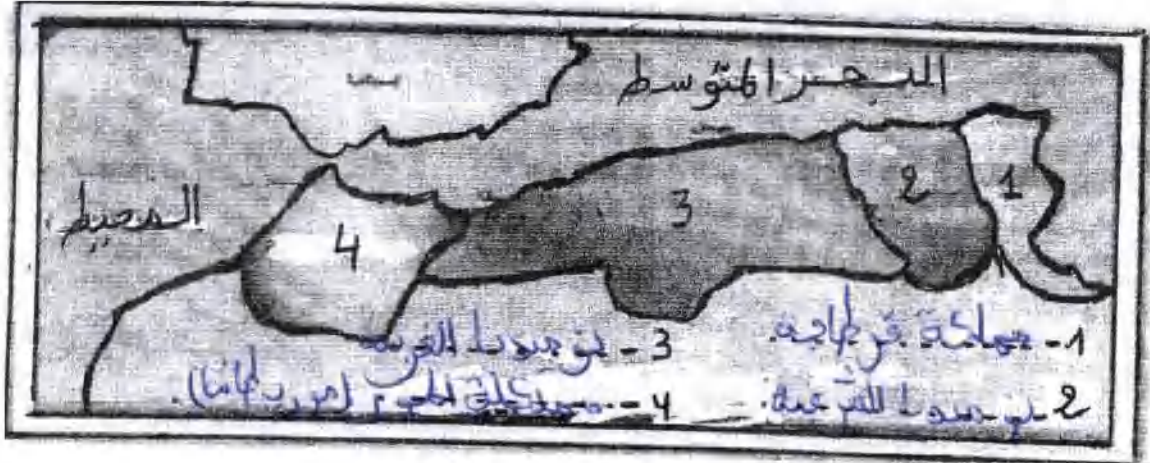 البحر المتوسط
المحيط
1
2
3
4
1- مملكة قرطاجة.
2- نوميديا الشرقية.
3- نوميديا الغربية
4- مملكة المور (موريطانيا).